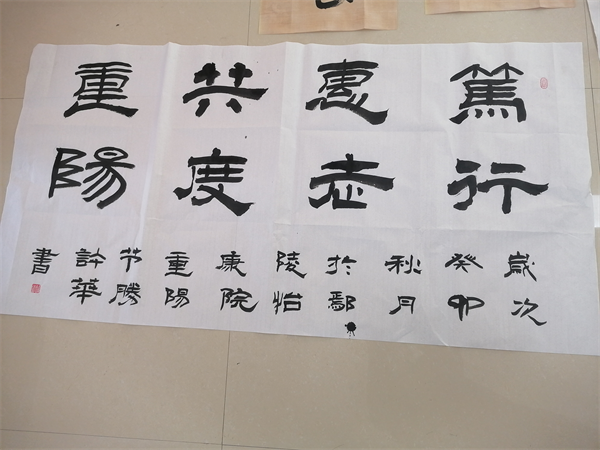 篤行
惠老
共度
重陽
歲次
癸卯
秋月
於鄢
陵怡
康院
重陽
节勝
許華
書